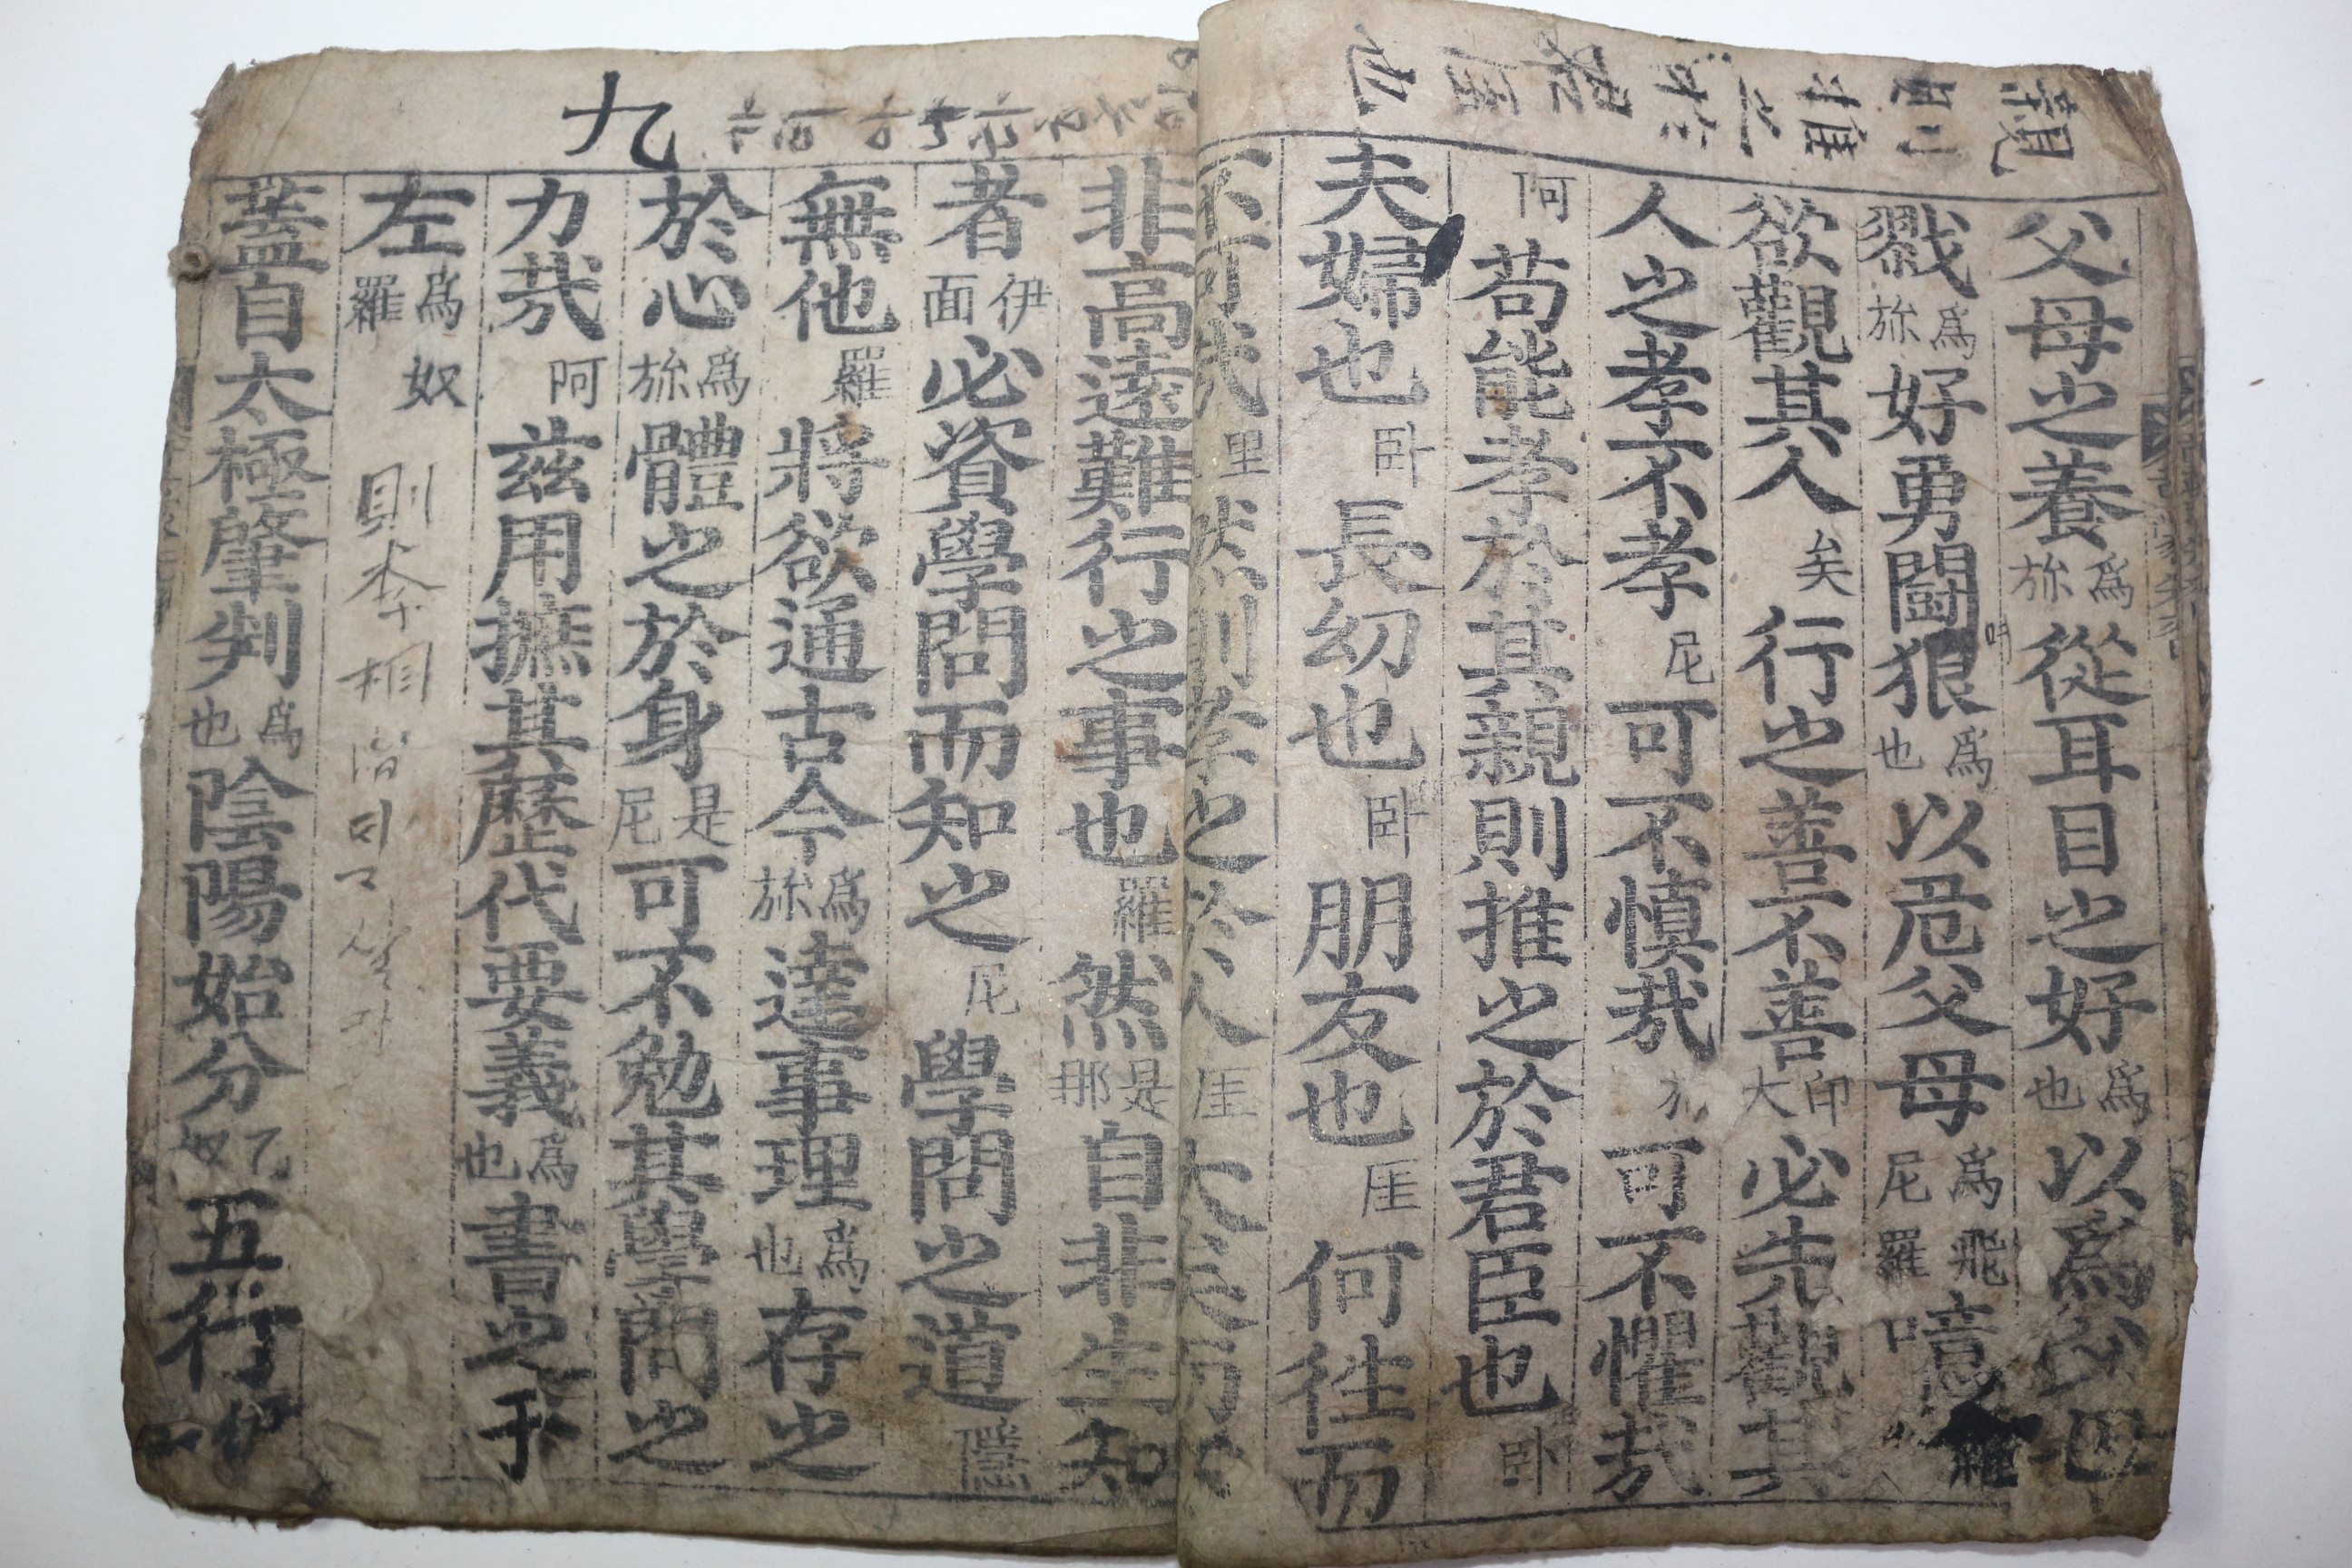 親則推之於
父母之養爲旀從耳目之好爲也以爲
戮爲旀好勇鬪狠爲也以危父母爲飛尼羅噫
欲觀其人矣行之善不善印大必先觀其
人之孝不孝尼可不慎哉可不懼哉
阿苟能孝於其親則推之於君臣也卧
夫婦也卧長幼也卧朋友也厓何往而
不可哉里然則孝之於人厓大矣
九
非高遠難行之事也羅然是那自非生知
者伊面必資學問而知之尼學問之道隱
無他羅將欲通古今爲旀達事理爲也存之
於心爲旀體之於身是尼可不勉其學問之
力哉阿茲用摭其歷代要義爲也書之于
左爲羅奴
則李相
蓋自太極肇判爲也陰陽始分五行